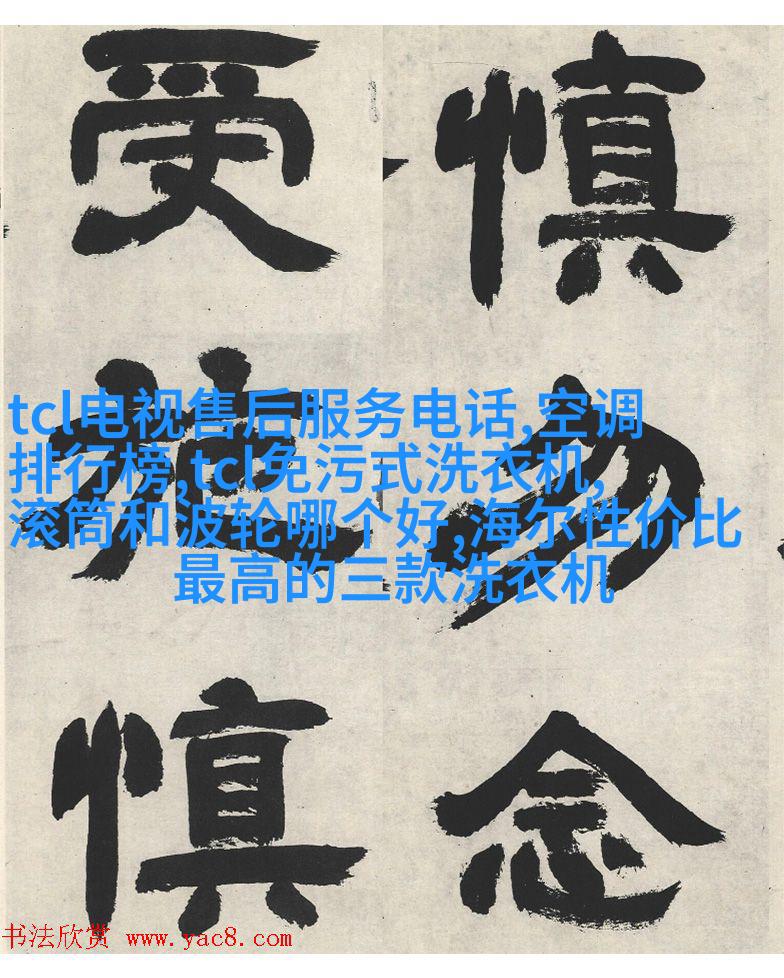 慎勿念
受施慎
tcl电视售后服务电话,空调
排行榜,tcl免污式洗衣机,
滚筒和波轮哪个好,海尔性价比
最高的三款洗衣机
书法欣赏 www.yac8.com